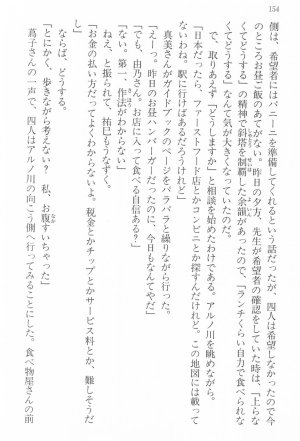 154
側は、希望者にはパニーニを準備してくれるという話だったが、四人は希望しなかったので今
のところお昼ご飯のあてがない。昨日の夕方、先生が希望者の確認をしていた時は、「上らな
くてどうする」の精神で斜塔を制覇した余韻があったので、「ランチくらい自力で食べなく
てどうする」なんて気が大きくなっていたのだ。
で、取りあえず「どうしますか」と相談を始めたわけである。アルノ川を眺めながら。
「日本だったら、ファーストフード店とかコンビニとか探すんだけど。この地図には載って
ないわね。駅に行けばあるだろうけれど」
真美さんがガイドブックのページをパラパラと繰りながら言った。
「えーっ。昨日のお昼ハンバーガーだったのに、今日もなんてやだ」
「でも、由乃さん。お店に入って食べる自信ある?」
「ない。第一、作法がわからない」
ねえ、と振られて、祐巳もうなずく。
「お金の払い方だってよくわからないよ。税金とかチップとかサービス料とか、難しそうだ
し」
ならば、どうする。
「とにかく、歩きながら考えない? 私、お腹すいちゃった」
蔦子さんの一声で、四人はアルノ川の向こう側へ行ってみることにした。食べ物屋さんの前